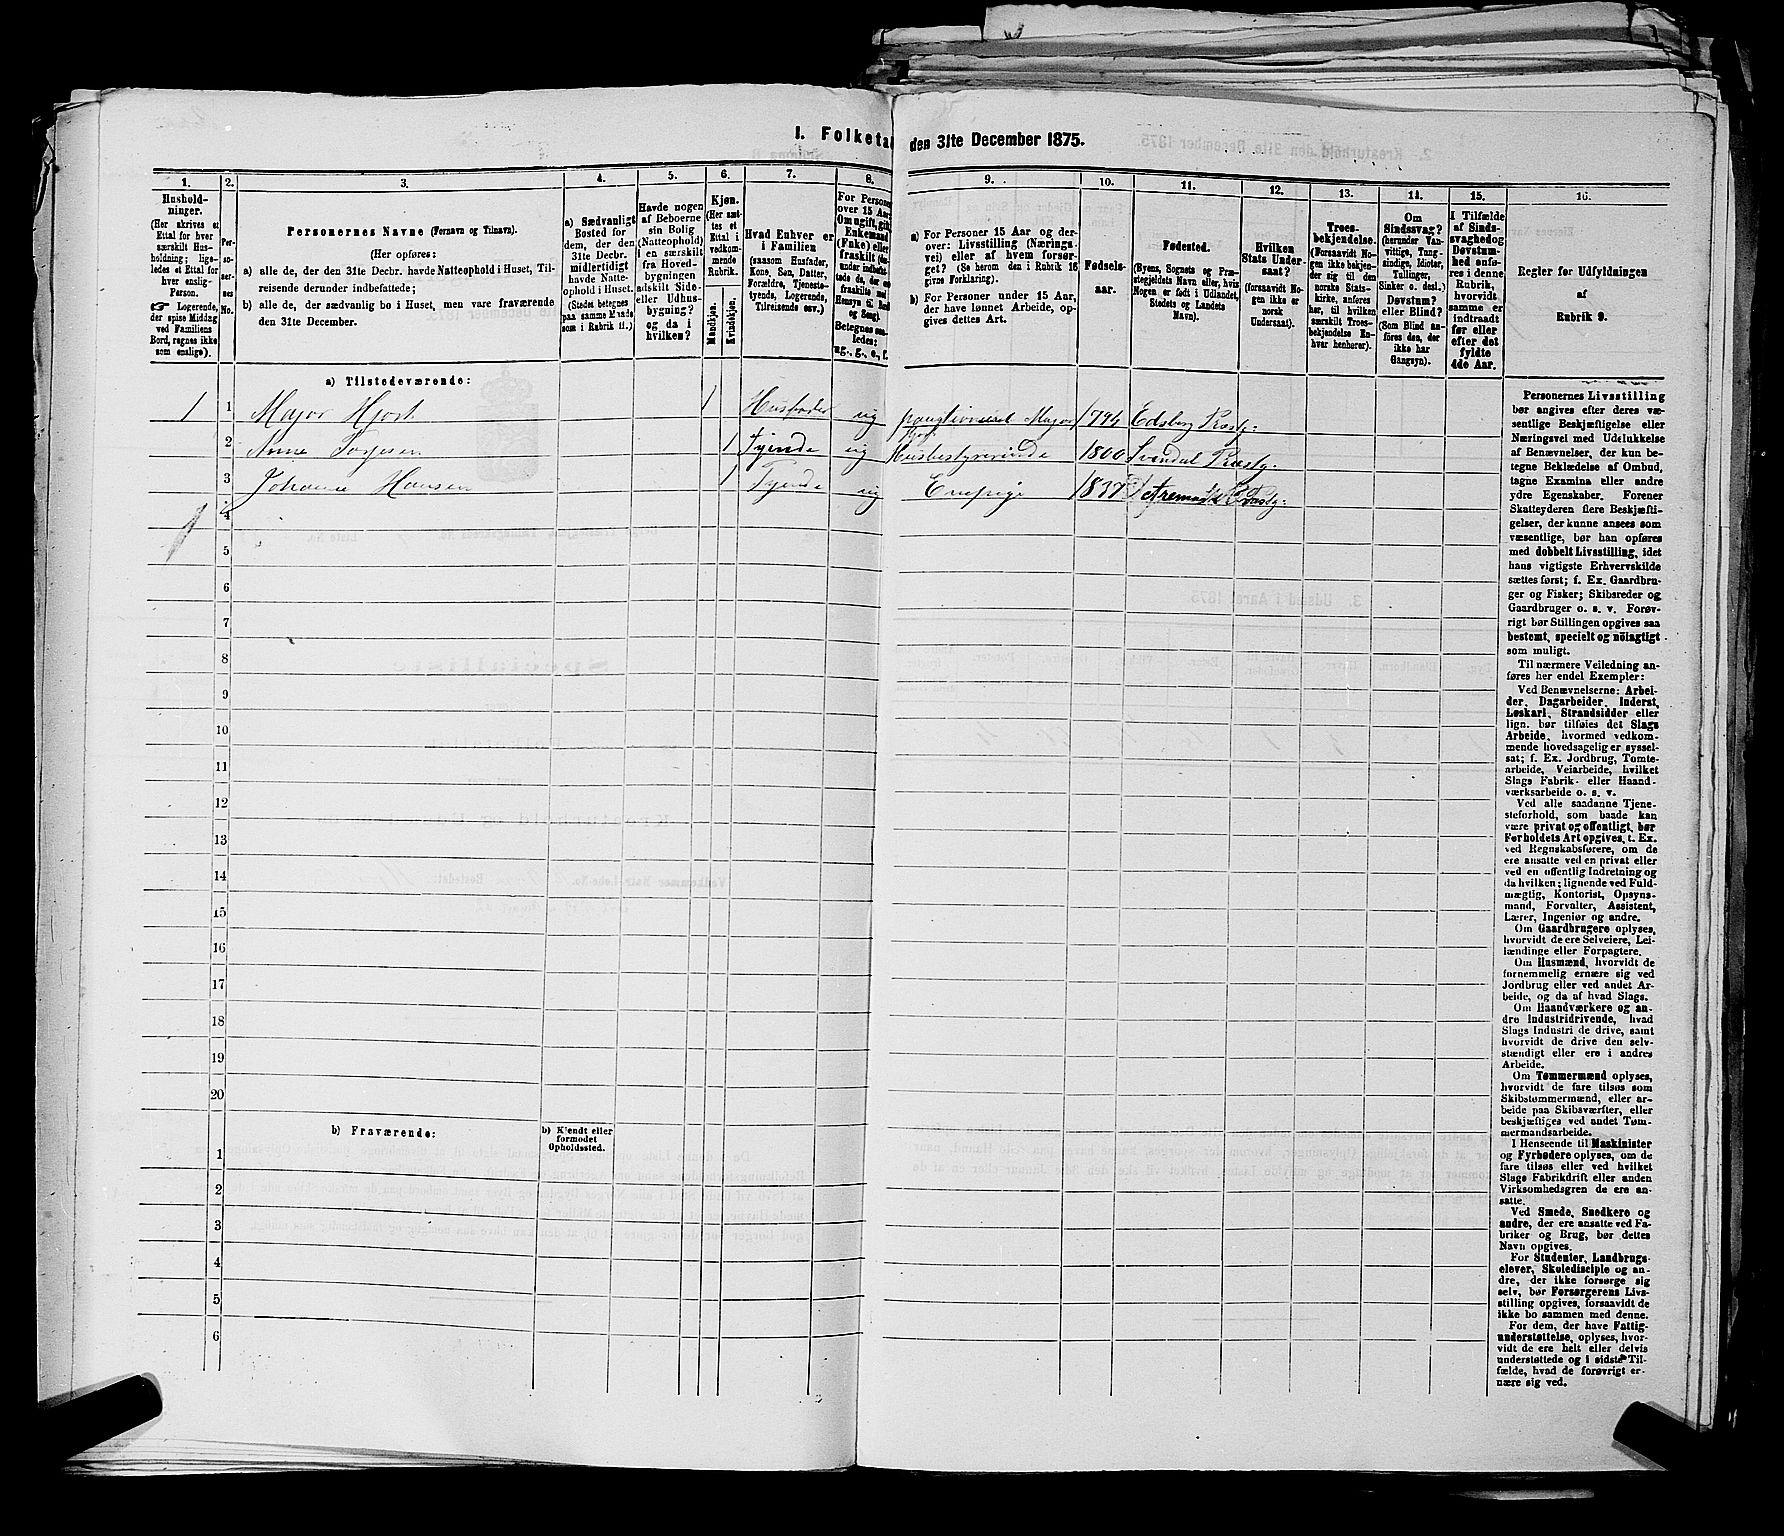 I. Folketæ
den 31te December 1875.
1.
2.
3.
4.
5.
6.
7.
8.
9.
10.
11.
12.
13.
14.
15.
16.
Hushold-
ninger.
(Her skrives et
Ettal for hver
særskilt Hus-
holdning; lige-
ledes et Ettal for
hver enslig-
Person.
☞ Logerende,
der spise Middag
ved Familiens
Bord, regnes ikke
som enslige).
Per-
so-
ner-
nes
No.
Personernes Navne (Fornavn og Tilnavn).
(Her opføres:
a) alle de, der den 31te Decbr. havde Natteophold i Huset, Til-
reisende derunder indbefattede;
b) alle de, der sædvanlig bo i Huset, men vare fraværende
den 31te December.
a) Sædvanligt
Bosted for
dem, der den
31te Decbr.
midlertidigt
havde Natte-
ophold i Huset.
(Stedet betegnes
paa samme Maade
som i Rubrik 11.)
Havde nogen
af Beboerne
sin Bolig
(Natteophold)
i en særskilt
fra Hoved-
bygningen
adskilt Side-
eller Udhus-
bygning?
og da i
hvilken?
Kjøn.
(Her sæt-
tes et
Ettal i
vedkom-
mende
Rubrik.
Mandkjøn.
Kvindekjøn.
Hvad Enhver er
i Familien
(saasom Husfader,
Kone, Søn, Datter,
Forældre, Tjeneste-
tyende, Logerende,
Tilreisende osv.)
For Personer
over 15 Aar:
Om ugift, gift,
Enkemand
(Enke) eller
fraskilt
Betegnes saa-
ledes:
ug., g., e., f.
a) For Personer 15 Aar og der-
over: Livsstilling (Nærings-
vei) eller af hvem forsør-
get? (Se herom den i Rubrik 16
givne Forklaring).
b) For Personer under 15 Aar,
der have lønnet Arbeide, op-
gives dettes Art.
Fødsels-
aar.
Fødested.
(Byens, Sognets og Præ-
stegjeldets Navn eller, hvis
Nogen er født i Udlandet,
Stedets og Landets
Navn).
Hvilken
Stats Under-
saat?
(forsaavidt No-
gen ikke er
norsk
Undersaat).
Troes-
bekjendelse.
(Forsaavidt No-
gen ikke bekjen-
der sig til den
norske Stats-
kirke, anføres
her, til hvilken
særskilt Troes-
bekjendelse En-
hver henhører).
Om
Sindssvag?
(herunder Van-
vittige, Tung-
sindige, Idioter,
Tullinger,
Sinker o. desl.)
Døvstum?
eller Blind?
(Som Blind an-
føres den, der
ikke har
Gangsyn).
I Tilfælde
af Sinds-
svaghed og
Døvstum-
hed anfø-
res i denne
Rubrik,
hvorvidt
samme er
indtraadt
før eller
efter det
fyldte
4de Aar.
Regler for Udfyldningen
af
Rubrik 9.
a) Tilstedeværende:
1 1 Major Hjort 1 Husfader ug pensioneret Major 1794 Edsberg Præstg:
2 Anne 1 Tyende ug Husbestyrerinde 1800 Præstg.
3 Johanne Hansen 1 Tyende ug Enepige 1837 Præstg:
4
5
6
7
8
9
10
11
12
13
14
15
16
17
18
19
20
b) Fraværende:
b) Kjendt eller
formodet
Opholdssted.
1
2
3
4
5
6
Personernes Livsstilling
bør angives efter deres væ-
sentlige Beskjæftigelse eller
Næringsvei med Udelukkelse
af Benævnelser, der kun be-
tegne Beklædelse af Ombud,
tagne Examina eller andre
ydre Egenskaber. Forener
Skatteyderen flere Beskjæfti-
gelser, der kunne ansees som
væsentlige, bør han opføres
med dobbelt Livsstilling, idet
hans vigtigste Erhvervskilde
sættes først; f. Ex. Gaardbru-
ger og Fisker; Skibsreder og
Gaardbruger o. s. v. Forøv-
rigt bør Stillingen opgives saa
bestemt, specielt og nöiagtigt
som muligt.
Til nærmere Veiledning an-
føres her endel Exempler:
Ved Benævnelserne: Arbei-
der, Dagarbeider, Inderst,
Løskarl, Strandsidder eller
lign. bør tilføies det Slags
Arbeide, hvormed vedkom-
mende hovedsagelig er syssel-
sat; f. Ex. Jordbrug, Tomte-
arbeide, Veiarbeide, hvilket
Slags Fabrik- eller Haand-
værksarbeide o. s. v.
Ved alle saadanne Tjene-
steforhold, som baade kan
være privat og offentligt, bør
Forholdets Art opgives, t. Ex.
ved Regnskabsførere, om de
ere ansatte ved en privat eller
ved en offentlig Indretning og
da hvilken; lignende ved Fuld-
mægtig, Kontorist, Opsyns-
mand, Forvalter, Assistent,
Lærer, Ingeniør og andre.
Om Gaardbrugere oplyses,
hvorvidt de ere Selveiere, Lei-
lændinge eller Forpagtere.
Om Husmænd, hvorvidt de
fornemmelig ernære sig ved
Jordbrug eller ved andet Ar-
beide, og da af hvad Slags.
Om Haandværkere og an-
dre Industridrivende, hvad
Slags Industri de drive, samt
hvorvidt de drive den selv-
stændigt eller ere i andres
Arbeide.
Om Tømmermænd oplyses,
hvorvidt de fare tilsøs som
Skibstømmermænd, eller ar-
beide paa Skibsværfter, eller
beskjæftiges ved andet Tøm-
mermandsarbeide.
I Henseende til Maskinister
og Fyrbødere oplyses, om de
fare tilsøs eller ved hvilket
Slags Fabrikdrift eller anden
Virksomhedsgren de ere an-
satte.
Ved Smede, Snedkere og
andre, der ere ansatte ved Fa-
briker og Brug, bør dettes
Navn opgives.
For Studenter, Landbrugs-
elever, Skoledisciple og an-
dre, der ikke forsørge sig
selv, bør Forsørgerens Livs-
stilling opgives, forsaavidt de
ikke bo sammen med denne.
For dem, der have Fattig-
understøttelse, oplyses, hvor-
vidt de ere helt eller delvis
understøttede og i sidste Til-
fælde, hvad de forøvrigt er-
nære sig ved.